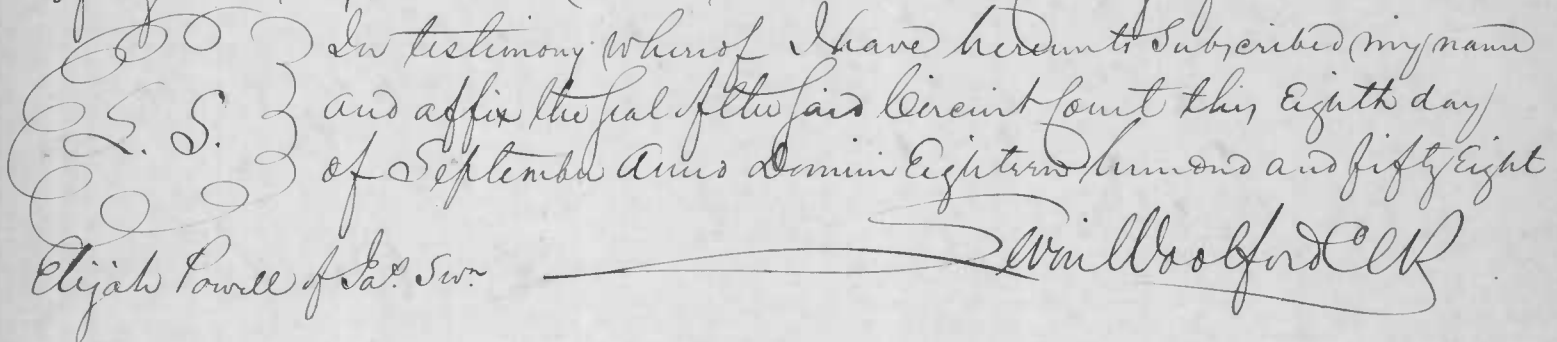 In testimony whereof I have hereunto Subscribed my name
L. S. and affix the Seal of the Said Circuit Court this Eighth day
of September Anno Domini Eighteen hundred and fifty Eight
Levin Woolford Clk
Elijah Powell of Jas. Swn